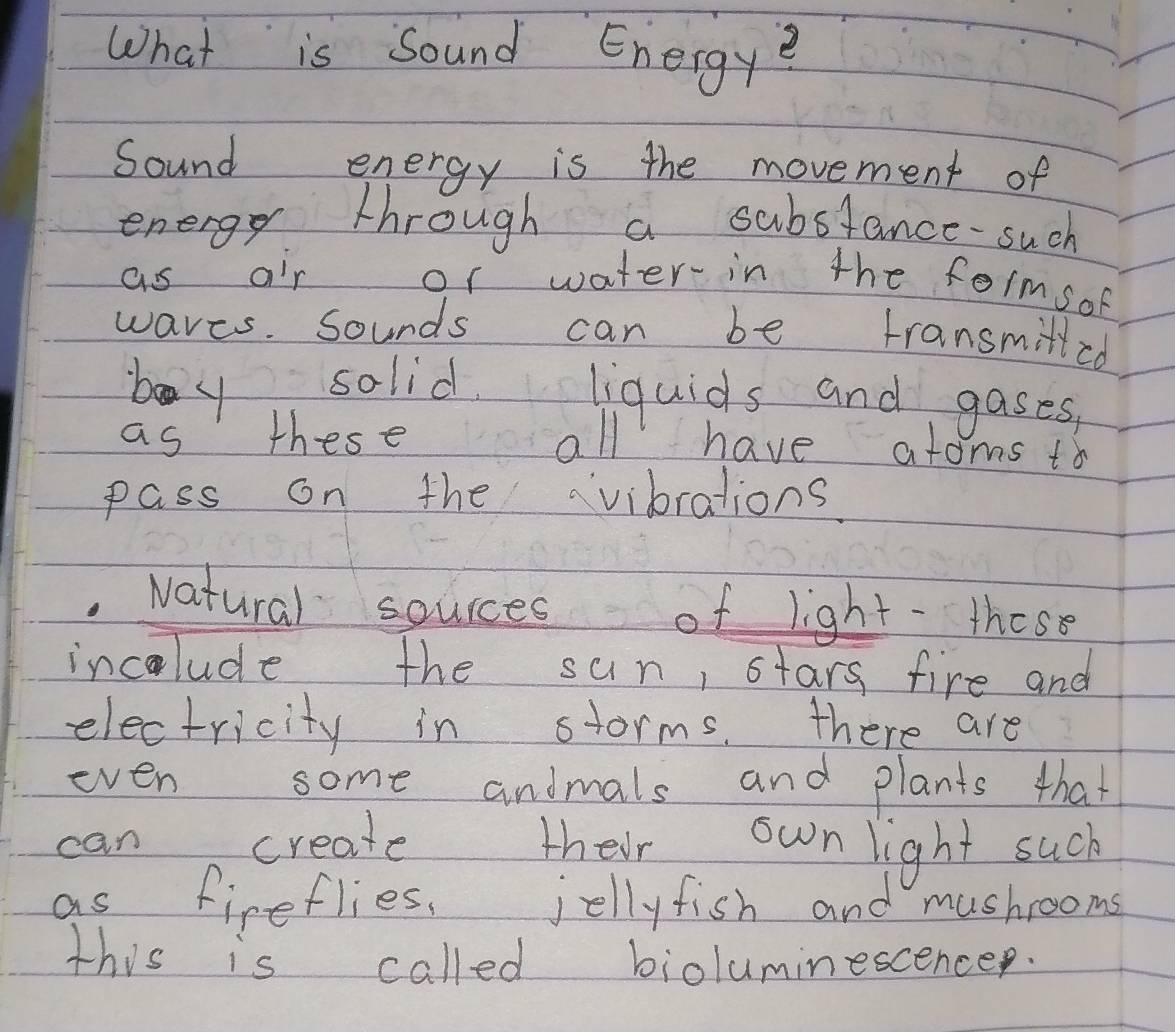 What is Sound Energy?
Sound energy is the movement of
energy through a substance-such
as air or water-in the forms of
waves. Sounds can be transmitted
by solid, liquids and gases,
as these all have atoms to
pass on the vibrations.
. Natural sources of light - these
include the sun, stars, fire and
electricity in storms. there are
even some animals and plants that
can create their own light such
as fireflies, jellyfish and mushrooms
this is called bioluminescence.